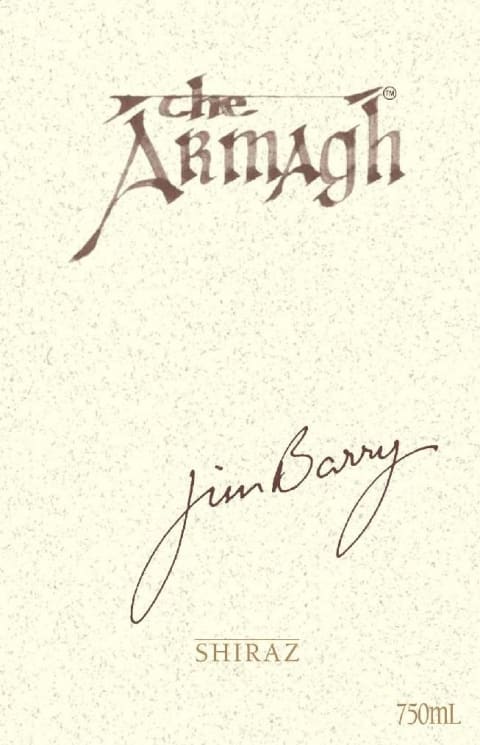 the
ARMAgh
TM
Jim Barry
SHIRAZ
750mL